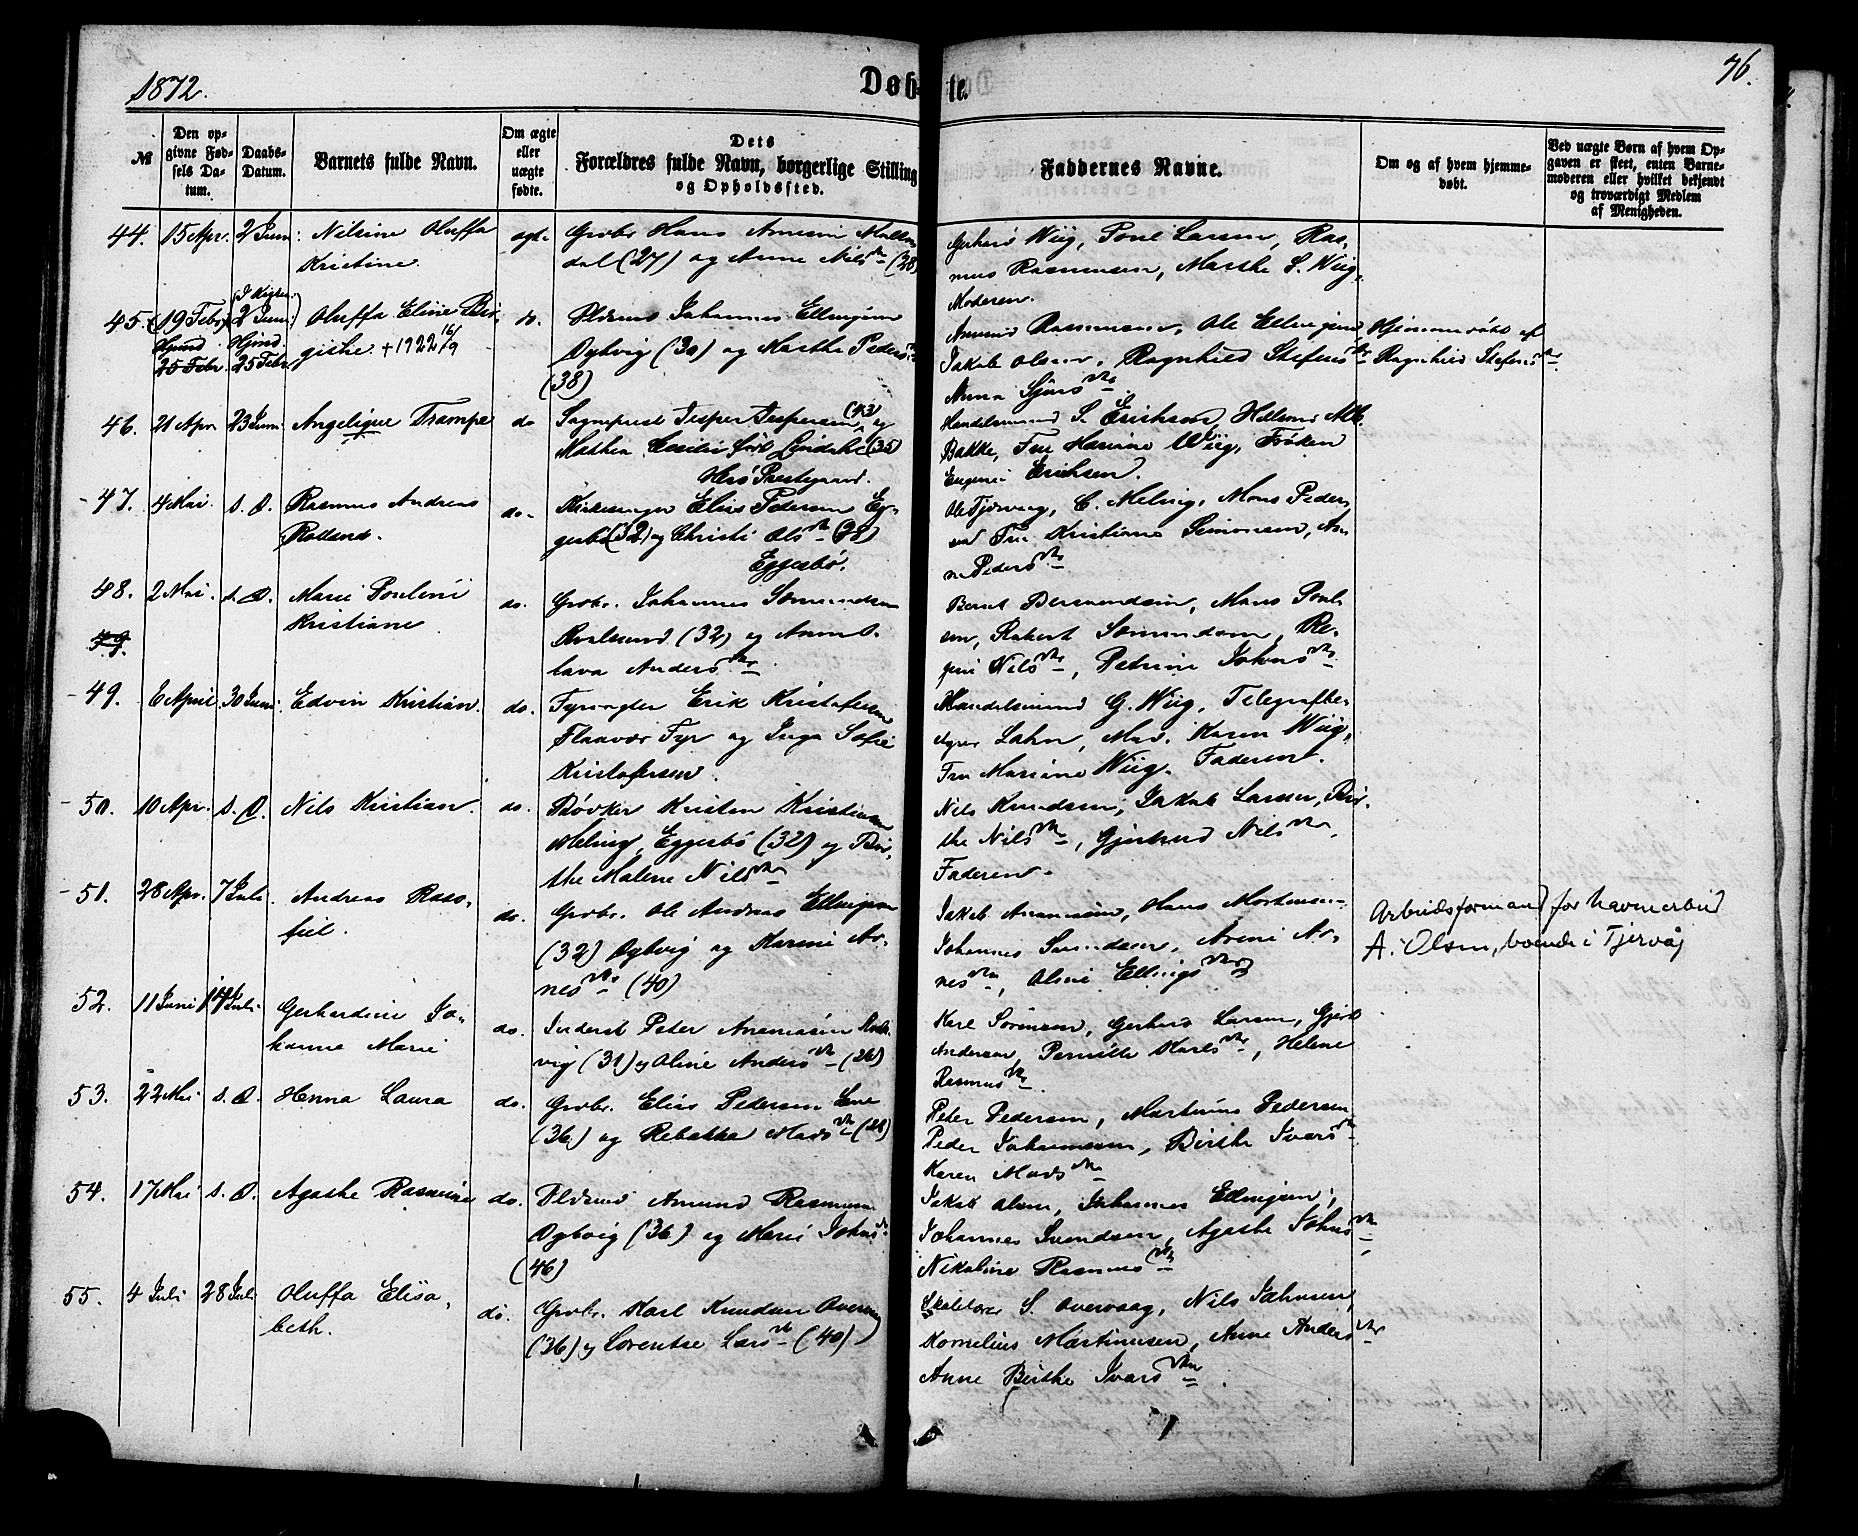 1872.
Døb-
te.
76.
№
Den op-
givne Fød-
sels Da-
tum.
Daabs-
Datum.
Barnets fulde Navn.
Om ægte
eller
uægte
fødte.
Dets
Forældres fulde Navn, borgerlige Stilling
og Opholdssted.
Faddernes Navne.
Om og af hvem hjemme-
døbt.
Ved uægte Børn af hvem Op-
gaven er skeet, enten Barne-
moderen eller hvilket bekjendt
og troværdigt Medlem
af Menigheden.
44. 15 Apr. 2 Juni Nilsine Oluffa
Kristine
Grbr. Hans
dal (27) og Anne Nilsdtr (28)
Gerhard Wiig, Poul Larsen, Ras-
mus Rasmussen, Marthe S. Wiig,
Moderen.
45. (19 Febr) 2 Juni Oluffa Eline Bir-
githe. +1922 16/9
25 Febr 25 Febr
do. Johannes Ellingsen
(30) og Marthe Peders
(38)
Amund Rasmussen, Ole Ellingsen
Jakob Olsen, Ragnhild Stefensdtr
Anna Sjursdtr
Hjemmedøbt af
Ragnhild Stefensdtr
46. 21 Apr 23 Juni Angelique Trampe
do Sogneprest Jesper Jespersen (43) og
Mathea Cecilie født Lindahl (35)
Herø Prestegaard.
Handelsmand S. Eriksen,
Bakke, Fru Hanine Wiig, Frøken
Eugenie Erichsen.
47. 4 Mai s. D. Rasmus Andreas
Rolland.
do. Kirkesanger Elias Pedersen Eg-
gesbø (32) og Christi Olsdtr (38)
Eggesbø.
Ole Tjervaag, C. Meling, Mons Peder-
sen Fru Kristiane Simonsen, An-
ne Pedersdtr
48. 2 Mai. s. D. Marie Pouline
Kristiane
do. Grbr. Johannes
Kvalsund (32) og Anne O-
lava Andersdtr
Berent Bersvendsen, Mons Poul-
sen, Robert
gine Nilsdtr, Petrine Johnsdtr
49.
49. 6 April 30 Juni. Edvin Kristian.
do. Fyrvogter Erik Kristofersen
Flaavær Fyr og Inga Sofie
Kristofersen.
Handelsmand G. Wiig, Telegrafbe-
styrer Lahn, Mad. Karen Wiig,
Fru Mariane Wiig. Faderen.
50. 10 Apr. s. D. Nils Kristian.
do. Bøvker Kristen Kristiansen
Meling, Eggesbø (32) og Bir-
the Malene Nilsdtr
Nils Knudsen, Jakob Larsen, Bir-
the Nilsdtr, Gjertrud Nilsdtr,
Faderen.
51. 28 Apr. 7 Juli. Andreas Rass-
feil.
do. Grbr. Ole Andreas Ellingsen
(32) og Karine Ar-
nesdtr (40)
Jakob Hans Mortensen
Johannes Arne Ar-
nesdtr, Oline Ellingsdtr
Arbeidsformand for havnearbeid
A. Olsen, boende i Tjervåg
52. 11 Juni 14 Juli Gerhardine Jo-
hanna Marie
do. Inderst Peter
vig (31) og Oline Andersdtr (26)
Karl Sørensen, Gerhard Larsen, Gjert
Andersen, Pernille Karlsdtr, Helene
Rasmusdtr
53. 22 Mai s. D. Hanna Laura
do. Grbr. Elias Pedersen
(36) og Rebekka Madsdtr (28)
Peter Pedersen, Martinus Pedersen,
Peder Johannesen, Birthe Ivarsdtr
Karen Madsdtr
54. 17 Mai s. D. Agathe Rasmine
do. Amund Rasmussen
(36) og Marie Johns
(46)
Jakob Olsen, Johannes Ellingsen,
Johannes Svendsen, Agathe Johnsdtr,
Nikoline Rasmusdtr
55. 4 Juli 28 Juli Oluffa Elisa-
beth.
do. Grbr. Karl Knudsen
(36) og Lorentse Larsdtr (40)
Skolelærer S. Overvaag, Nils Johnsen,
Kornelius Martinusen, Anne Andersdtr
Anne Birthe Ivarsdtr.